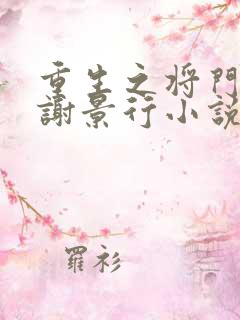 重生之将門
謝景行小説
羅衫